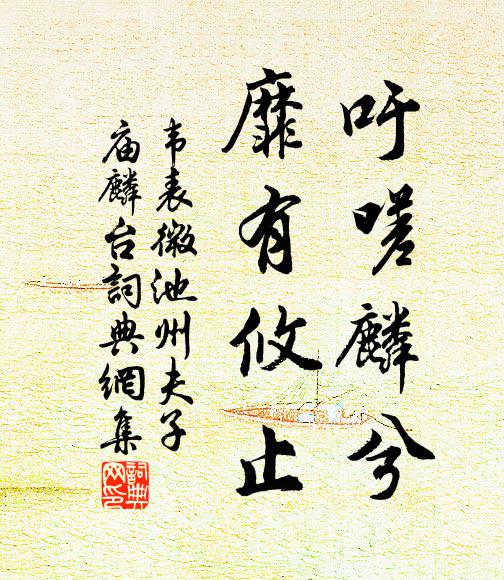 吁嗟麟兮
靡有攸止
韦表微池州夫子
庙麟台詞典網集
詞典
网印